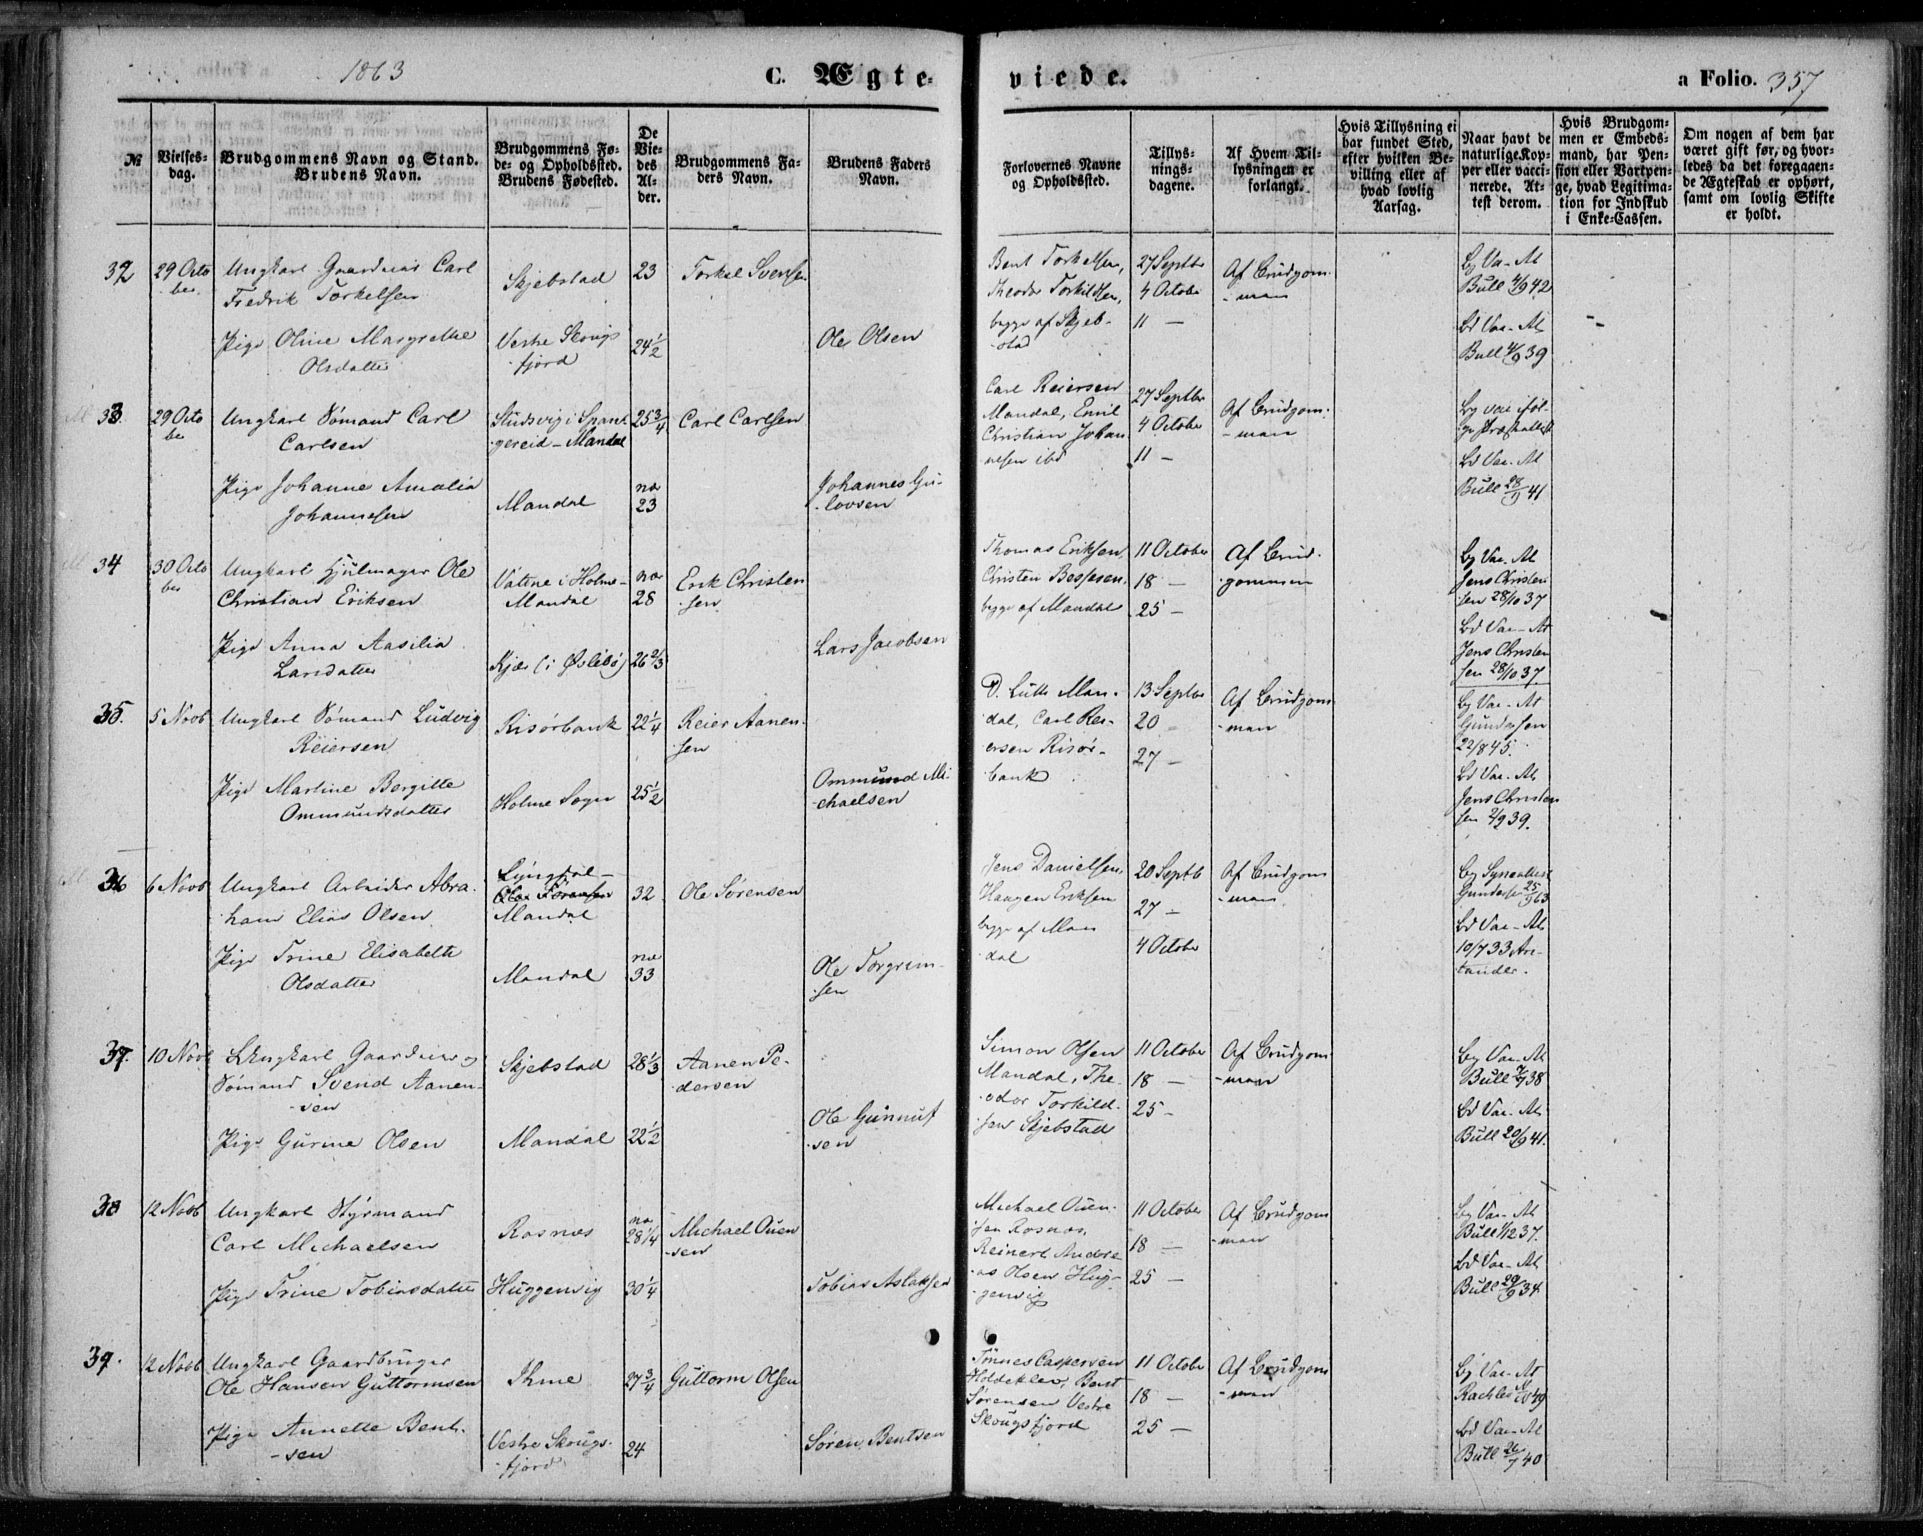 1863
C. Ægte-
viede.
a Folio. 357
№
Vielses-
dag.
Brudgommens Navn og Stand.
Brudens Navn.
Brudgommens Fø-
de- og Opholdssted.
Brudens Fødested.
De
Vie-
des
Al-
der.
Brudgommens Fa-
ders Navn.
Brudens Faders
Navn.
Forlovernes Navne
og Opholdssted.
Tillys-
nings-
dagene.
Af Hvem Til-
lysningen er
forlangt.
Hvis Tillysning ei
har fundet Sted,
efter hvilken Be-
villing eller af
hvad lovlig
Aarsag.
Naar havt de
naturlige Kop-
per eller vacci-
nerede. At-
test derom.
Hvis Brudgom-
men er Embeds-
mand, har Pen-
sion eller Vartpen-
ge, hvad Legitima-
tion for Indskud
i Enke-Cassen.
Om nogen af dem har
været gift før, og hvor-
ledes da det foregaaen-
de Ægteskab er ophørt,
samt om lovlig Skifte
er holdt.
32
29 Octo
ber
Ungkarl Gaardeier Carl
Fredrik Torkelsen
Skjebstad
23
Torkel Svensen
Bent Torkelsen,
Theodor Torkildsen,
begge af Skjeb-
stad
27 Septbr
4 October
11 —
Af Brudgom-
-man
Bg Vac-At
Bull 4/9 42
Pige Oline Margrethe
Olsdatter
Vestre Skougs
fjord
24 1/2
Ole Olsen
Bd Vac-At
Bull 4/9 39
33.
29 Octo
ber
Ungkarl Sømand Carl
Carlsen
Studsvig i Spang
gereid - Mandal
25 3/4
Carl Carlsen
Carl Reiersen
Mandal, Emil
Christian Johan
nesen ibd
27 Septbr
4 October
11 —
Af Brudgom-
-man
Bg vac iføl-
ge Præsteattest
Pige Johanne Amalia
Johannesen
Mandal
nær
23
Johannes Gu-
lovsen
Bd Vac-At
Bull 28/9 41
34
30 Octo
ber
Ungkarl Hjulmager Ole
Christian Eriksen
Vatne i Holme-
Mandal
nær
28
Erik Christen
sen
Thomas Eriksen,
Christen Bessesen,
begge af Mandal
11 October
18 —
25 —
Af Brud-
gommen
Bg Vac-At
Jens Christen
sen 28/10 37
Pige Anna Aasilia
Larsdatter
Kjær (i Øslebø)
26 2/3
Lars Jacobsen
Bd Vac-At
Jens Christen
sen 28/10 37.
35.
5 Novb
Ungkarl Sømand Ludvig
Reiersen
Risørbank
22 1/4
Reier Aanen-
sen
D. Lütke Man-
dal, Carl Rei-
ersen Risør-
bank
13 Septbr
20 —
27 —
Af Brudgom
-man
Bg Vac-At
Gundersen
22/8 45.
Pige Martine Bergitte
Ommundsdatter
Holme Sogn
25 1/2
Ommund Mi-
chaelsen
Bd Vac-At
Jens Christen
sen 2/9 39.
36
6 Novb
Ungkarl Arbeider Abra-
ham Elias Olsen
Lyngdal-
Ole Sørensen
Mandal
32
Ole Sørensen
Jens Danielsen,
Haagen Eriksen
begge af Man
dal
20 Septb
27 —
4 October
Af Brudgom
-man
Bg Synsattest
Gundersen 25/9 63
Pige Trine Elisabeth
Olsdatter
Mandal
nær
33
Ole Torgrim-
sen
Bd Vac-At
10/7 33 Arc-
tander.
37.
10 Novb
Ungkarl Gaardeier og
Sømand Svend Aanen-
-sen
Skjebstad
28 1/3
Aanen Pe-
dersen
Simon Olsen
Mandal, The-
odor Torkild-
sen Skjebstad
11 October
18 —
25 —
Af Brudgom
-man
Bg Vac-At
Bull 2/7 38
Pige Gurine Olsen
Mandal
22 1/2
Ole Gunnuf
sen
Bd Vac-At
Bull 20/9 41.
38
12 Novb
Ungkarl Styrmand
Carl Michaelsen
Rosnes
nær
28 1/4
Michael Ouen
-sen
Michael Ouen-
sen Rosnes,
Reinert Andre
as Olsen Hug-
genvig
11 October
18 —
25 —
Af Brudgom
-man
Bg Vac-At
Bull 1/12 37.
Pige Trine Tobiasdatter
Huggenvig
30 1/4
Tobias Aslaksen
Bd Vac-At
Bull 29/9 34
39.
12 Novb
Ungkarl Gaardbruger
Ole Hansen Guttormsen
Ihme
27 3/4
Guttorm Olsen
Tønnes Caspersen
Holdeklev, Bent
Sørensen Vestre
Skougsfjord
11 October
18 —
25 —
Af Brudgom
-man
Bg Vac-At
Pige Annette Bent-
-sen
Vestre Skougs-
fjord
24
Søren Bentsen
Bd Vac-At
Bull 26/7 40